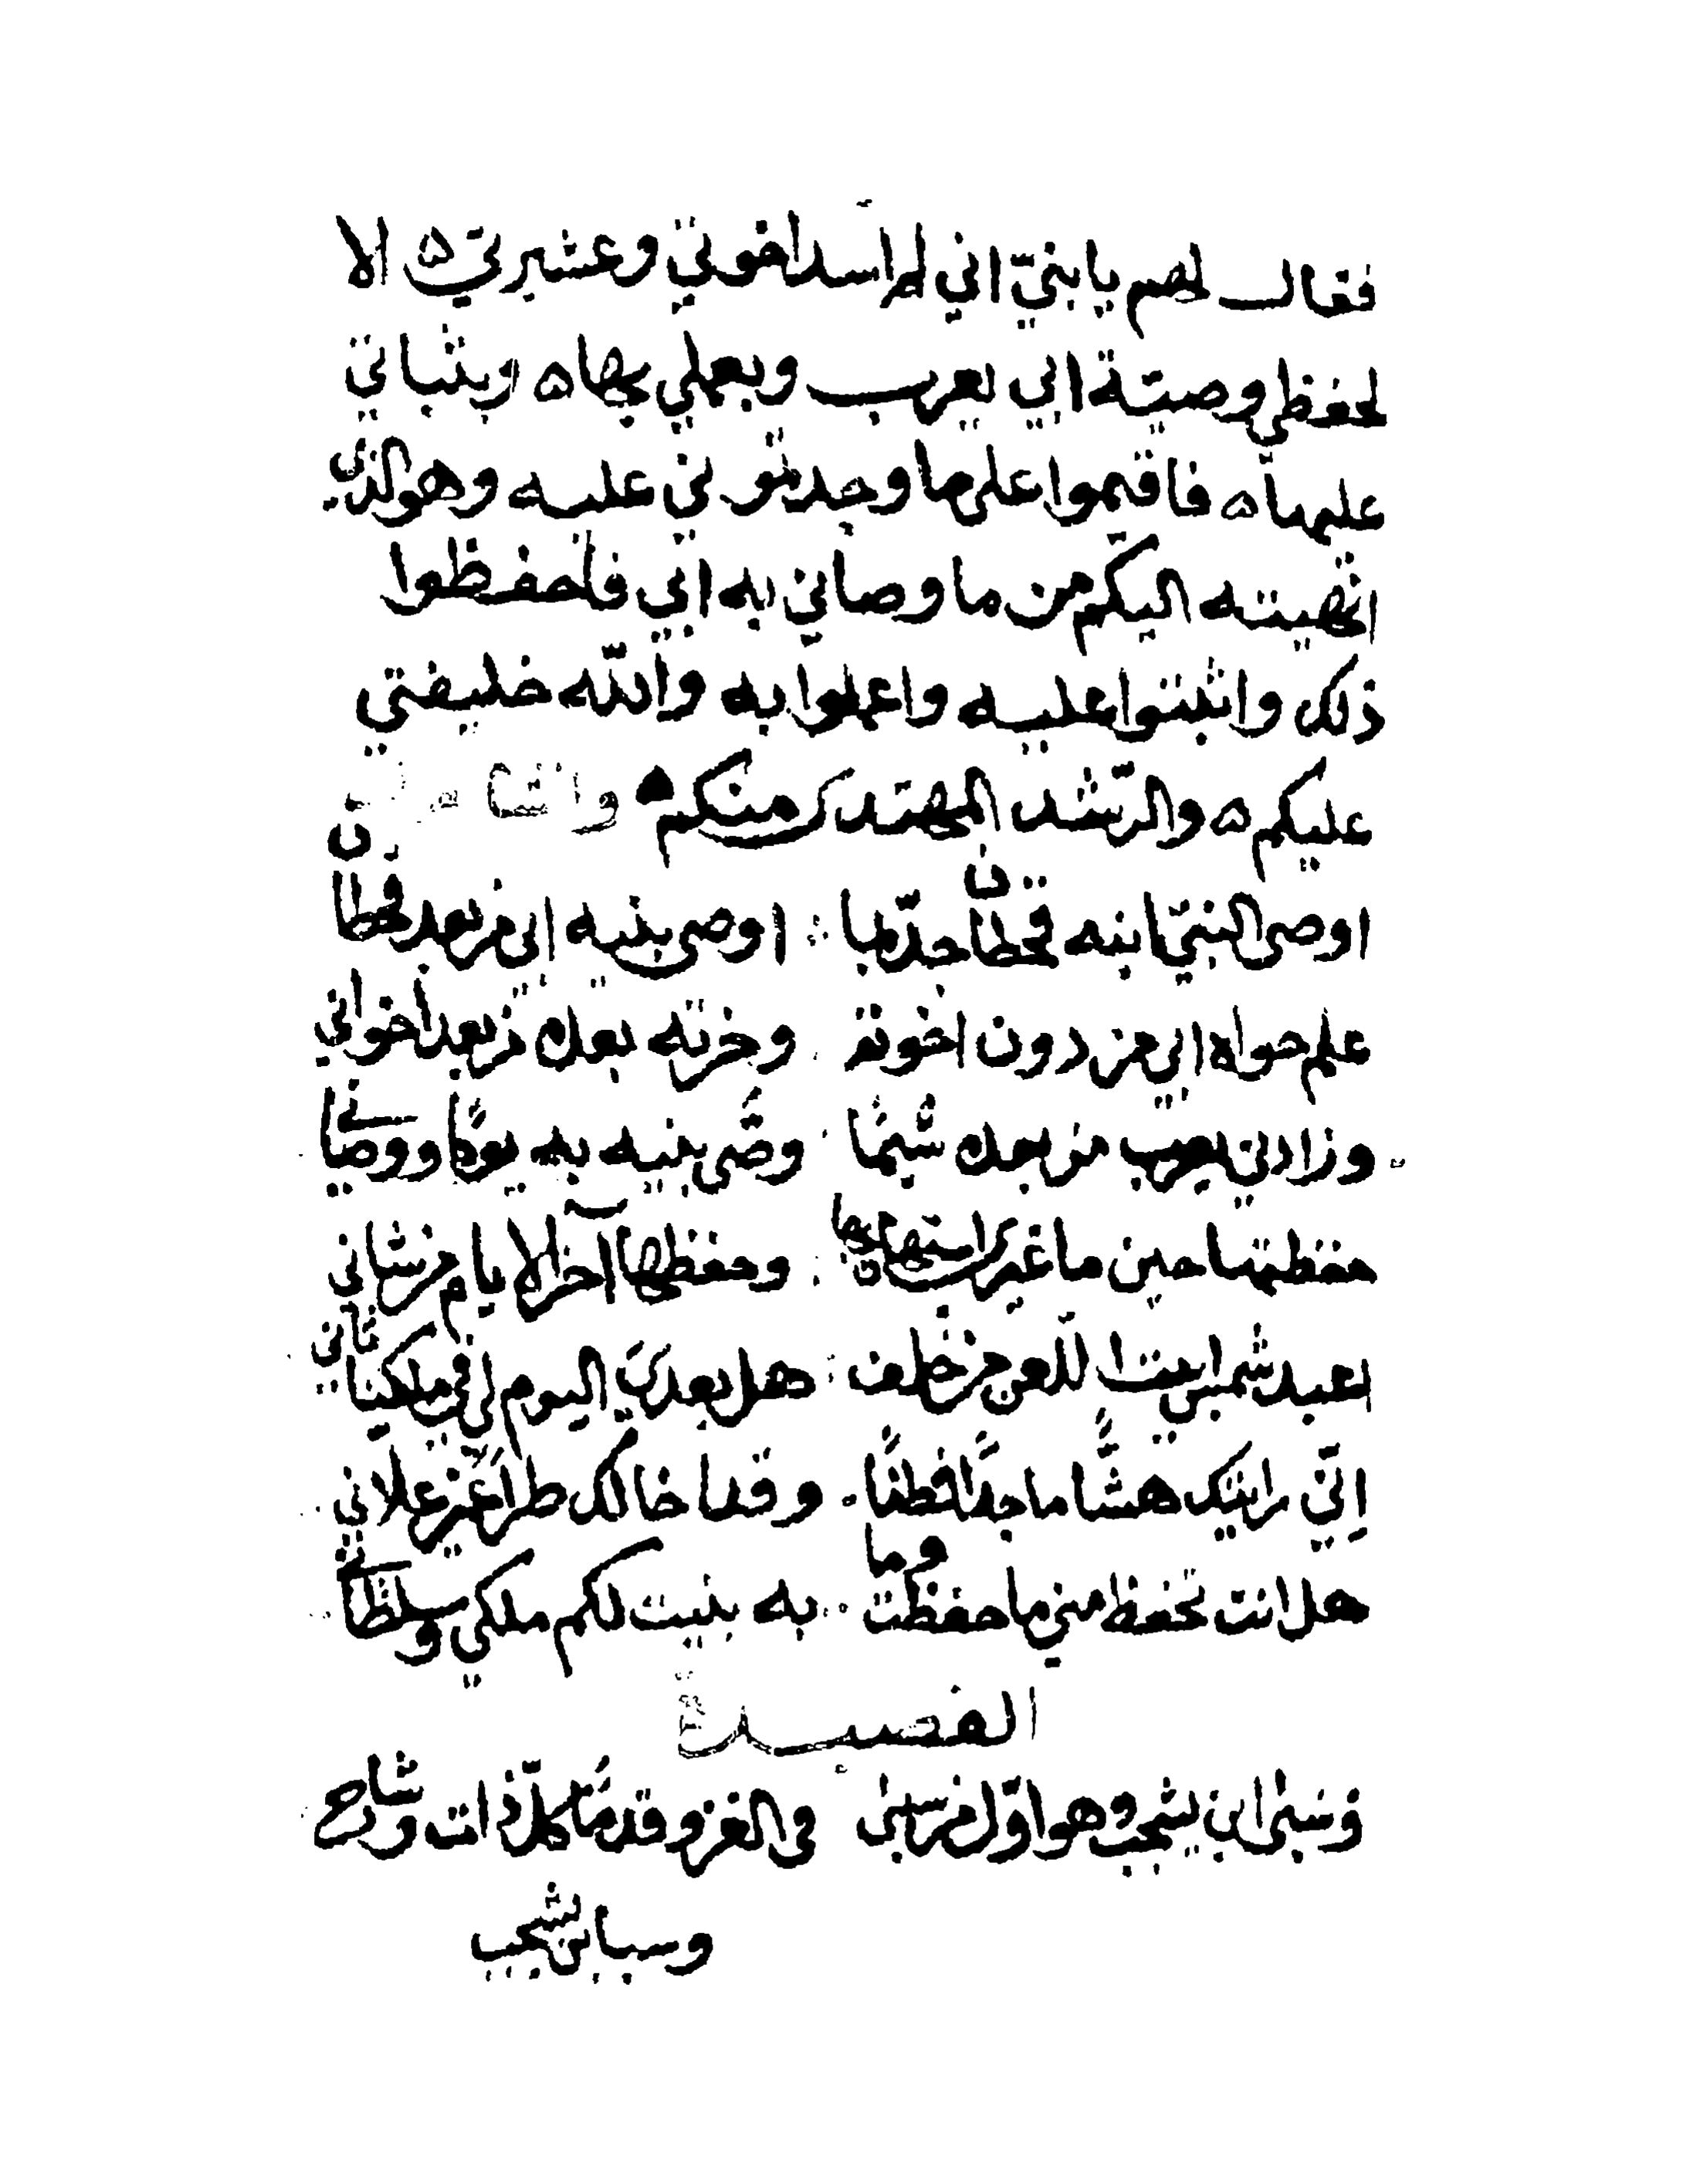 فقال لهم يا بنيّ اني لم اسد اخوتي وعشيرتي ه الا
لحفظي وصيّة ابي يعرب وبعملي بها ه وبثباتي
عليها ه فاقيموا على ما وجدتموني عليه وهو الذي
انهيته اليكم من ما وصاني به ابي فاحفظوا
ذلك واثبتوا عليه واعملوا به والله خليفتي
عليكم ه والرّشد المهتدى منكم
اوصى النبيّ ابنه قحطان جدّ بما اوصى بنيه ابي من بعد قحطان
علم حواه ابي من دون اخوته وحزته بعده من بعد اخواني
وزادني يعرب من بعده شيمًا وصّى بنيه به يومًا ووصّاني
حفظتها حين ما غيري استهام بها وحفظها آخر الايام من شاني
اعبد شمس ابيت اللعن من خلف هل بعدي اليوم لي في ملكنا ثاني
اِنّي رايتك هشًّا ماجدًا فطنًا وقد اخالك طرًا غير علاني
هل انت تحفظ مني ما حفظت وما به بنيت لكم ملكي وسلطاني
القصيدة
وسبى ابن يشجب وهو اوّل من سبى في الغزو قدمًا كلّ ذات وشاح
وسبا بن يشجب